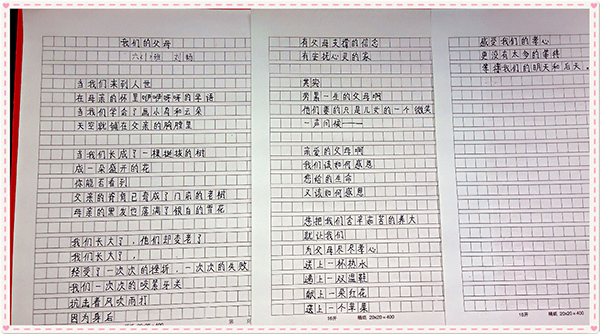 我们的父母
六(1)班 刘畅
当我们来到人世
在母亲的怀里咿咿呀呀的学语
当我们学会了画小鸟和云朵
天空就铺在父亲的胸膛里
当我们长成了一棵挺拔的树
成一朵盛开的花
你能否看到
父亲的脊背已变成了门前的老树
母亲的黑发也落满了银白的雪花
我们长大了，他们却变老了
我们长大了，
经受了一次次的挫折，一次次的失败
我们一次次的咬紧牙关
抗击着风吹雨打
因为身后
有父母支撑的信念
有安抚心灵的家
其实
劳累一生的父母啊
他们要的只是儿女的一个微笑
一声问候——
亲爱的父母啊
我们该如何感恩
您给的生命
又该如何感恩
您把我们含辛茹苦的养大
就让我们
为父母尽尽孝心
递上一杯热水
递上一双温鞋
献上一朵红花
递上一个苹果
感受我们的孝心
更没有太多的等待
等待我们的明天和后天。
16开 稿纸 20x20=400
16开 稿纸 20x20=400